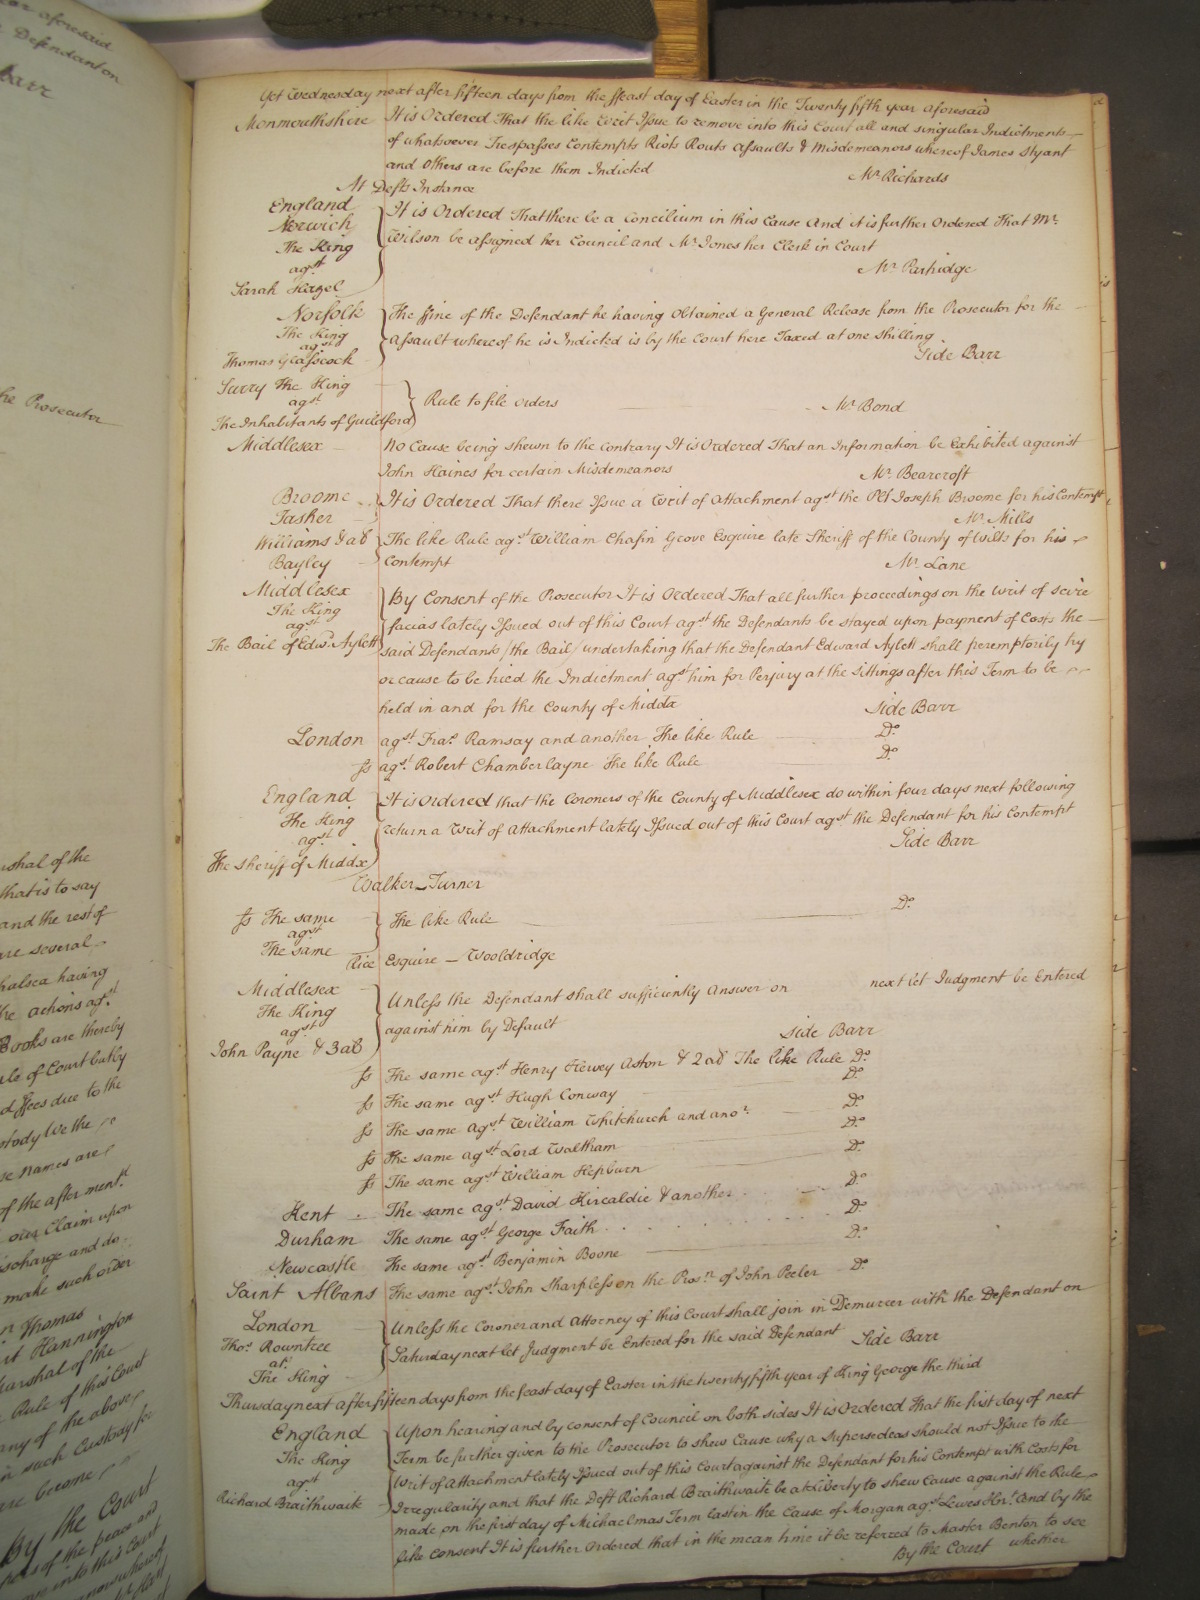 ear aforesaid
Defendant on
Barr
he Prosecutor
arshal of the
that is to say
and the rest of
are several
halsea having
the actions agst
Books are thereby
ule of Court but by
d ffees due to the
stody We the
se names are
of the after ment.d
our Claim upon
ischarge and do
make such order
Thomas
rt Hannington
Marshal of the
Rule of this Court
any of the above
in such Custody for
are become
By the Court
of the peace and
into this Court
Yet Wednesday next after fifteen days from the ffeast day of Easter in the Twenty fifth year aforesaid
Monmouthshire It is Ordered That the like Writ Issue to remove into this Court all and singular Indictments
of whatsoever Trespasses Contempts Riots Routs Assaults & Misdemeanors whereof James Bryant
and Others are before them Indicted Mr. Richards
At Defts Instance
England
Norwich
The King
agst
Sarah Hazel
It is Ordered That there be a Concilium in this Cause And it is further Ordered That Mr.
Wilson be assigned her Council and Mr. Jones her Clerk in Court
Mr. Partridge
Norfolk
The King
agst
Thomas Glasscock
The ffine of the Defendant he having Obtained a General Release from the Prosecutor for the
Assault whereof he is Indicted is by the Court here Taxed at one shilling
Side Barr
Surry The King
agst
The Inhabitants of Guildford
Rule to file orders Mr. Bond
Middlesex No Cause being shewn to the contrary It is Ordered That an Information be Exhibited against
John Haines for certain Misdemeanors Mr. Bearcroft
Broome
Tasher
It is Ordered That there Issue a Writ of Attachment agst the Plt Joseph Broome for his Contempt
Mr. Mills
Williams & al
Bayley
The like Rule agst William Chafin Grove Esquire late Sheriff of the County of Wilts for his
Contempt Mr. Lane
Middlesex
The King
agst
The Bail of Edwd. Aylett
By Consent of the Prosecutor It is Ordered That all further proceedings on the Writ of scire
facias lately Issued out of this Court agst the Defendants be stayed upon payment of Costs the
said Defendants (the Bail) undertaking that the Defendant Edward Aylett shall peremptorily try
or cause to be tried the Indictment agst him for Perjury at the Sittings after this Term to be
held in and for the County of Middx Side Barr
London agst. Fras. Ramsay and another The like Rule Do.
ss agst. Robert Chamberlayne The like Rule Do.
England
The King
agst.
The Sheriff of Middx
It is Ordered that the Coroners of the County of Middlesex do within four days next following
return a Writ of Attachment lately Issued out of this Court agst the Defendant for his Contempt
Side Barr
Walker – Turner
ss The same
agst
The same
The like Rule Do.
Rice Esquire – Wooldridge
Middlesex
The King
agst
John Payne & 3 als
Unless the Defendant shall sufficiently Answer on next let Judgment be Entered
against him by Default Side Barr
ss The same agst. Henry Hervey Aston & 2 als The like Rule Do.
ss The same agst. Hugh Conway Do.
ss The same agst. William Whitchurch and anor. Do.
ss The same agst. Lord Waltham Do.
ss The same agst. William Hepburn Do.
Kent The same agst. David Kircaldie & another Do.
Durham The same agst. George Faith Do.
Newcastle The same agst. Benjamin Boone Do.
Saint Albans The same agst. John Sharpless on the Prosn. of John Peeler Do.
London
Thos. Rowntree
at.
The King
Unless the Coroner and Attorney of this Court shall join in Demurrer with the Defendant on
Saturday next let Judgment be Entered for the said Defendant Side Barr
Thursday next after fifteen days from the feast day of Easter in the twenty fifth year of King George the third
England
The King
agst.
Richard Braithwaite
Upon hearing and by consent of Council on both sides It is Ordered That the first day of next
Term be further given to the Prosecutor to shew Cause why a Supersedeas should not Issue to the
Writ of Attachment lately Issued out of this Court against the Defendant for his Contempt with Costs for
Irregularity and that the Deft Richard Braithwaite be at Liberty to shew Cause against the Rule
made on the first day of Michaelmas Term last in the Cause of Morgan agst. Lewes Knt. And by the
like Consent It is further Ordered that in the mean time it be referred to Master Benton to see
By the Court whether